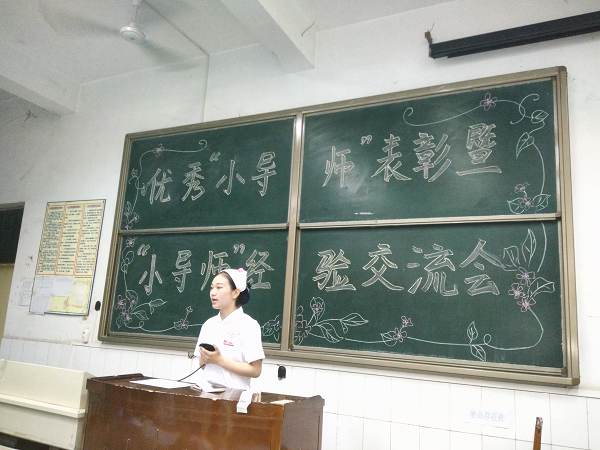 优秀“小导师”表彰暨
“小导师”经验交流会